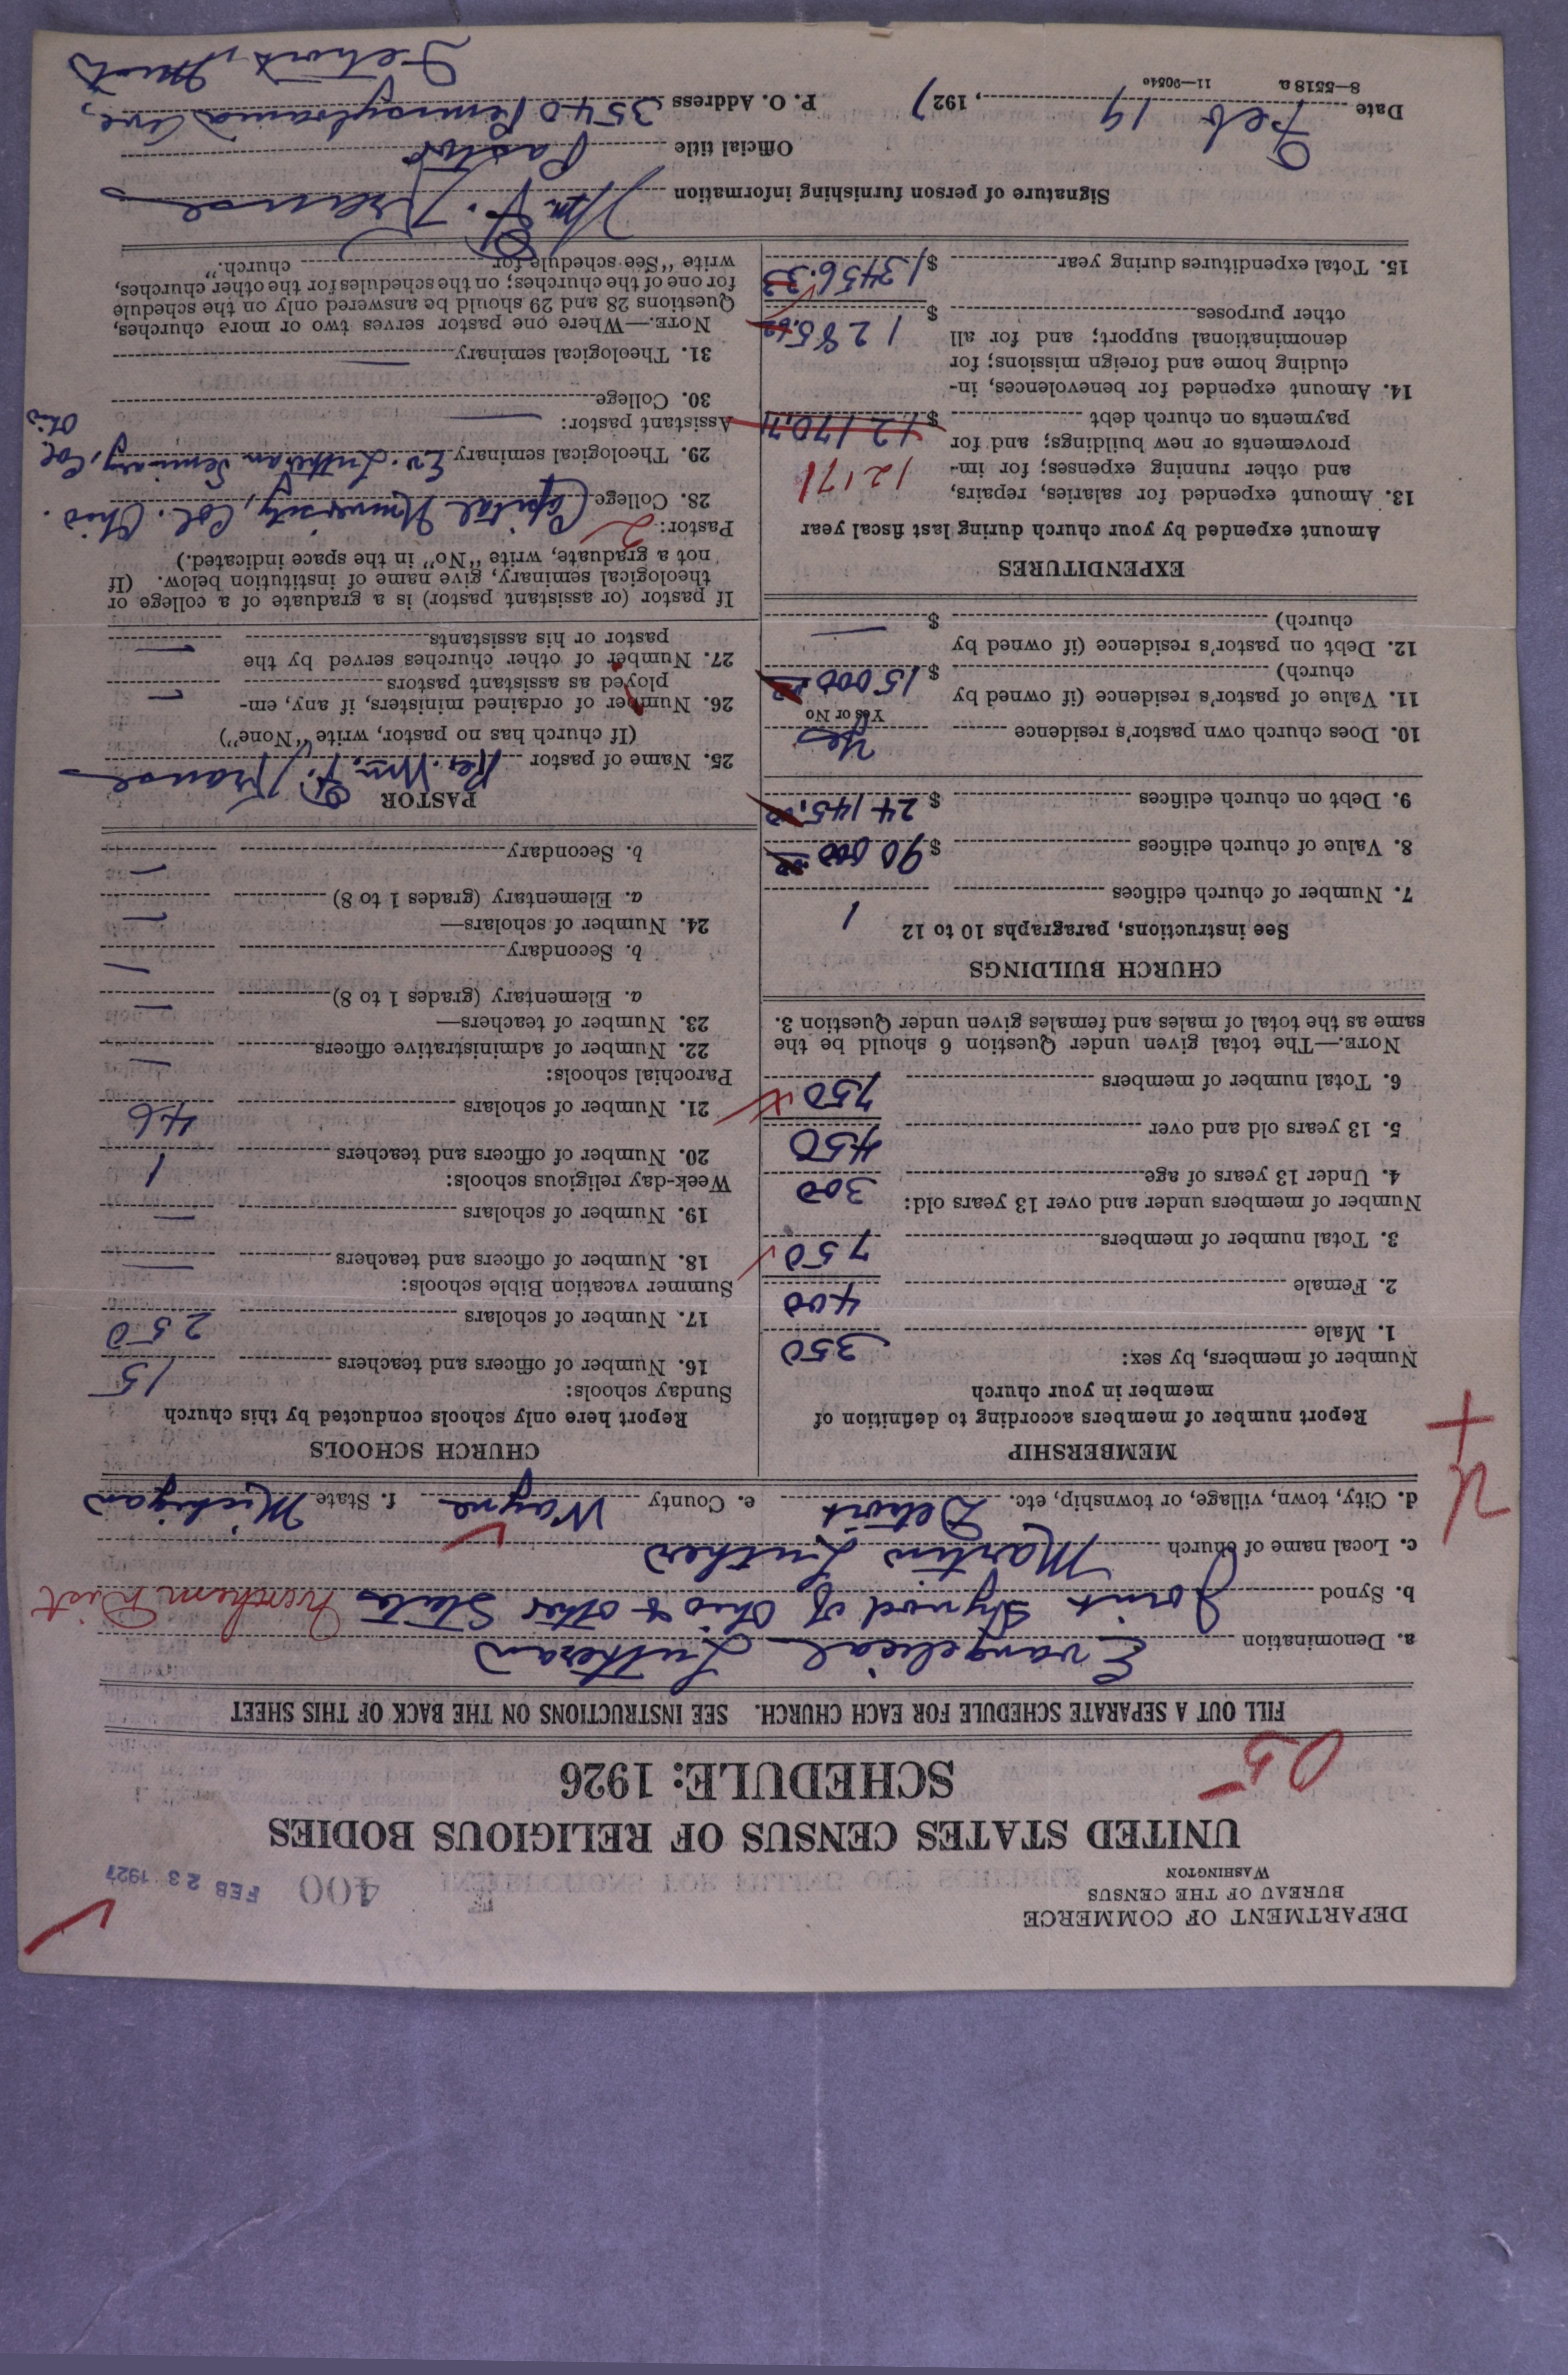 DEPARTMENT OF COMMERCE
BUREAU OF THE CENSUS
WASHINGTON
400
FEB 23 1927
UNITED STATES CENSUS OF RELIGIOUS BODIES
SCHEDULE: 1926
05
FILL OUT A SEPARATE SCHEDULE FOR EACH CHURCH. SEE INSTRUCTIONS ON THE BACK OF THIS SHEET
a. Denomination Evangelical Lutheran
b. Synod Joint Synod of Ohio & other States Northern Dist
c. Local name of church Martin Luther
d. City, town, village, or township, etc. Detroit e. County Wayne f. State Michigan
MEMBERSHIP
Report number of members according to definition of
member in your church
Number of members, by sex:
1. Male 350
2. Female 400
3. Total number of members 750
Number of members under and over 13 years old:
4. Under 13 years of age 300
5. 13 years old and over 450
6. Total number of members 750
NOTE.—The total given under Question 6 should be the
same as the total of males and females given under Question 3.
CHURCH BUILDINGS
See instructions, paragraphs 10 to 12
7. Number of church edifices 1
8. Value of church edifices $ 90 000
9. Debt on church edifices $ 24 145.00
10. Does church own pastor's residence Yes
Yes or No
11. Value of pastor's residence (if owned by
church) $ 15 000
12. Debt on pastor's residence (if owned by
church) $ —
EXPENDITURES
Amount expended by your church during last fiscal year
13. Amount expended for salaries, repairs,
and other running expenses; for im- 12171
provements or new buildings; and for
payments on church debt $ 12170.71
14. Amount expended for benevolences, in-
cluding home and foreign missions; for
denominational support; and for all
other purposes $ 1285.62
15. Total expenditures during year $ 13456.33
CHURCH SCHOOLS
Report here only schools conducted by this church
Sunday schools:
16. Number of officers and teachers 15
17. Number of scholars 250
Summer vacation Bible schools:
18. Number of officers and teachers —
19. Number of scholars —
Week-day religious schools:
20. Number of officers and teachers 1
21. Number of scholars 46
Parochial schools:
22. Number of administrative officers —
23. Number of teachers—
a. Elementary (grades 1 to 8) —
b. Secondary —
24. Number of scholars—
a. Elementary (grades 1 to 8) —
b. Secondary —
PASTOR
25. Name of pastor Rev. Wm. F. Krause
(If church has no pastor, write "None")
26. Number of ordained ministers, if any, em-
ployed as assistant pastors —
27. Number of other churches served by the
pastor or his assistants —
If pastor (or assistant pastor) is a graduate of a college or
theological seminary, give name of institution below. (If
not a graduate, write "No" in the space indicated.)
Pastor: 2
28. College Capital University, Col. Ohio.
29. Theological seminary Ev. Lutheran Seminary, Col
Ohio
Assistant pastor:
30. College —
31. Theological seminary —
NOTE.—Where one pastor serves two or more churches,
Questions 28 and 29 should be answered only on the schedule
for one of the churches; on the schedules for the other churches,
write "See schedule for church."
Signature of person furnishing information Wm F. Krause
Official title Pastor
Date Feb 19, 1927 P. O. Address 3540 Pennsylvania Ave,
Detroit, Mich
8—5518 a 11—9054e